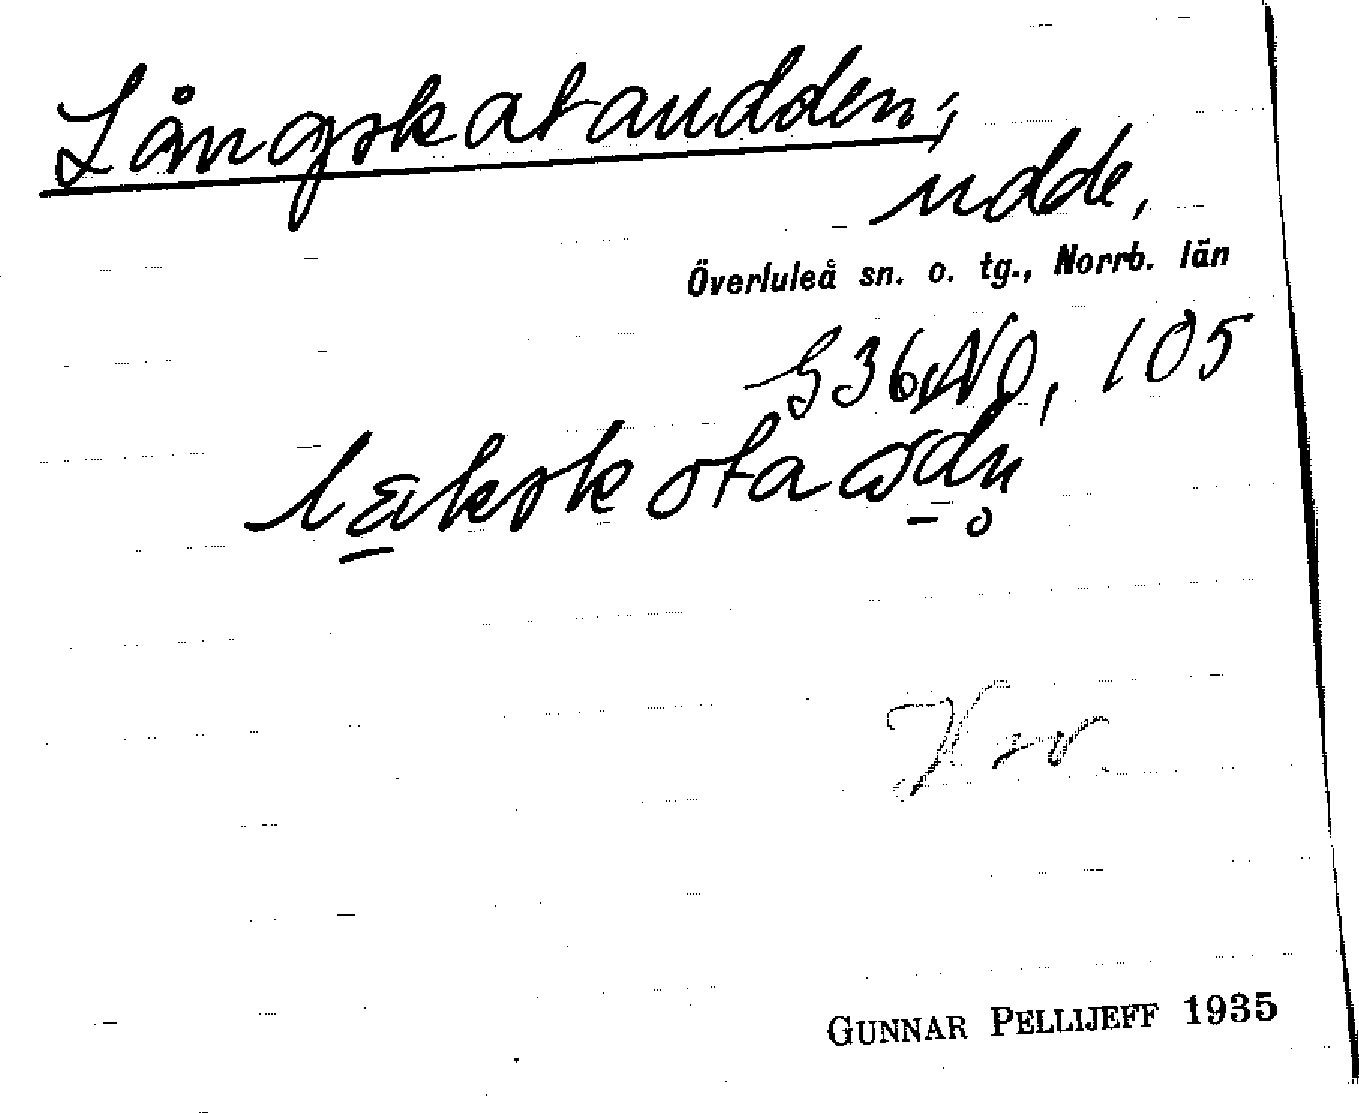 Långskataudden,
udde,
Överluleå sn. o. tg., Norrb. län
G36NO, 105
GUNNAR PELLIJEFF 1935